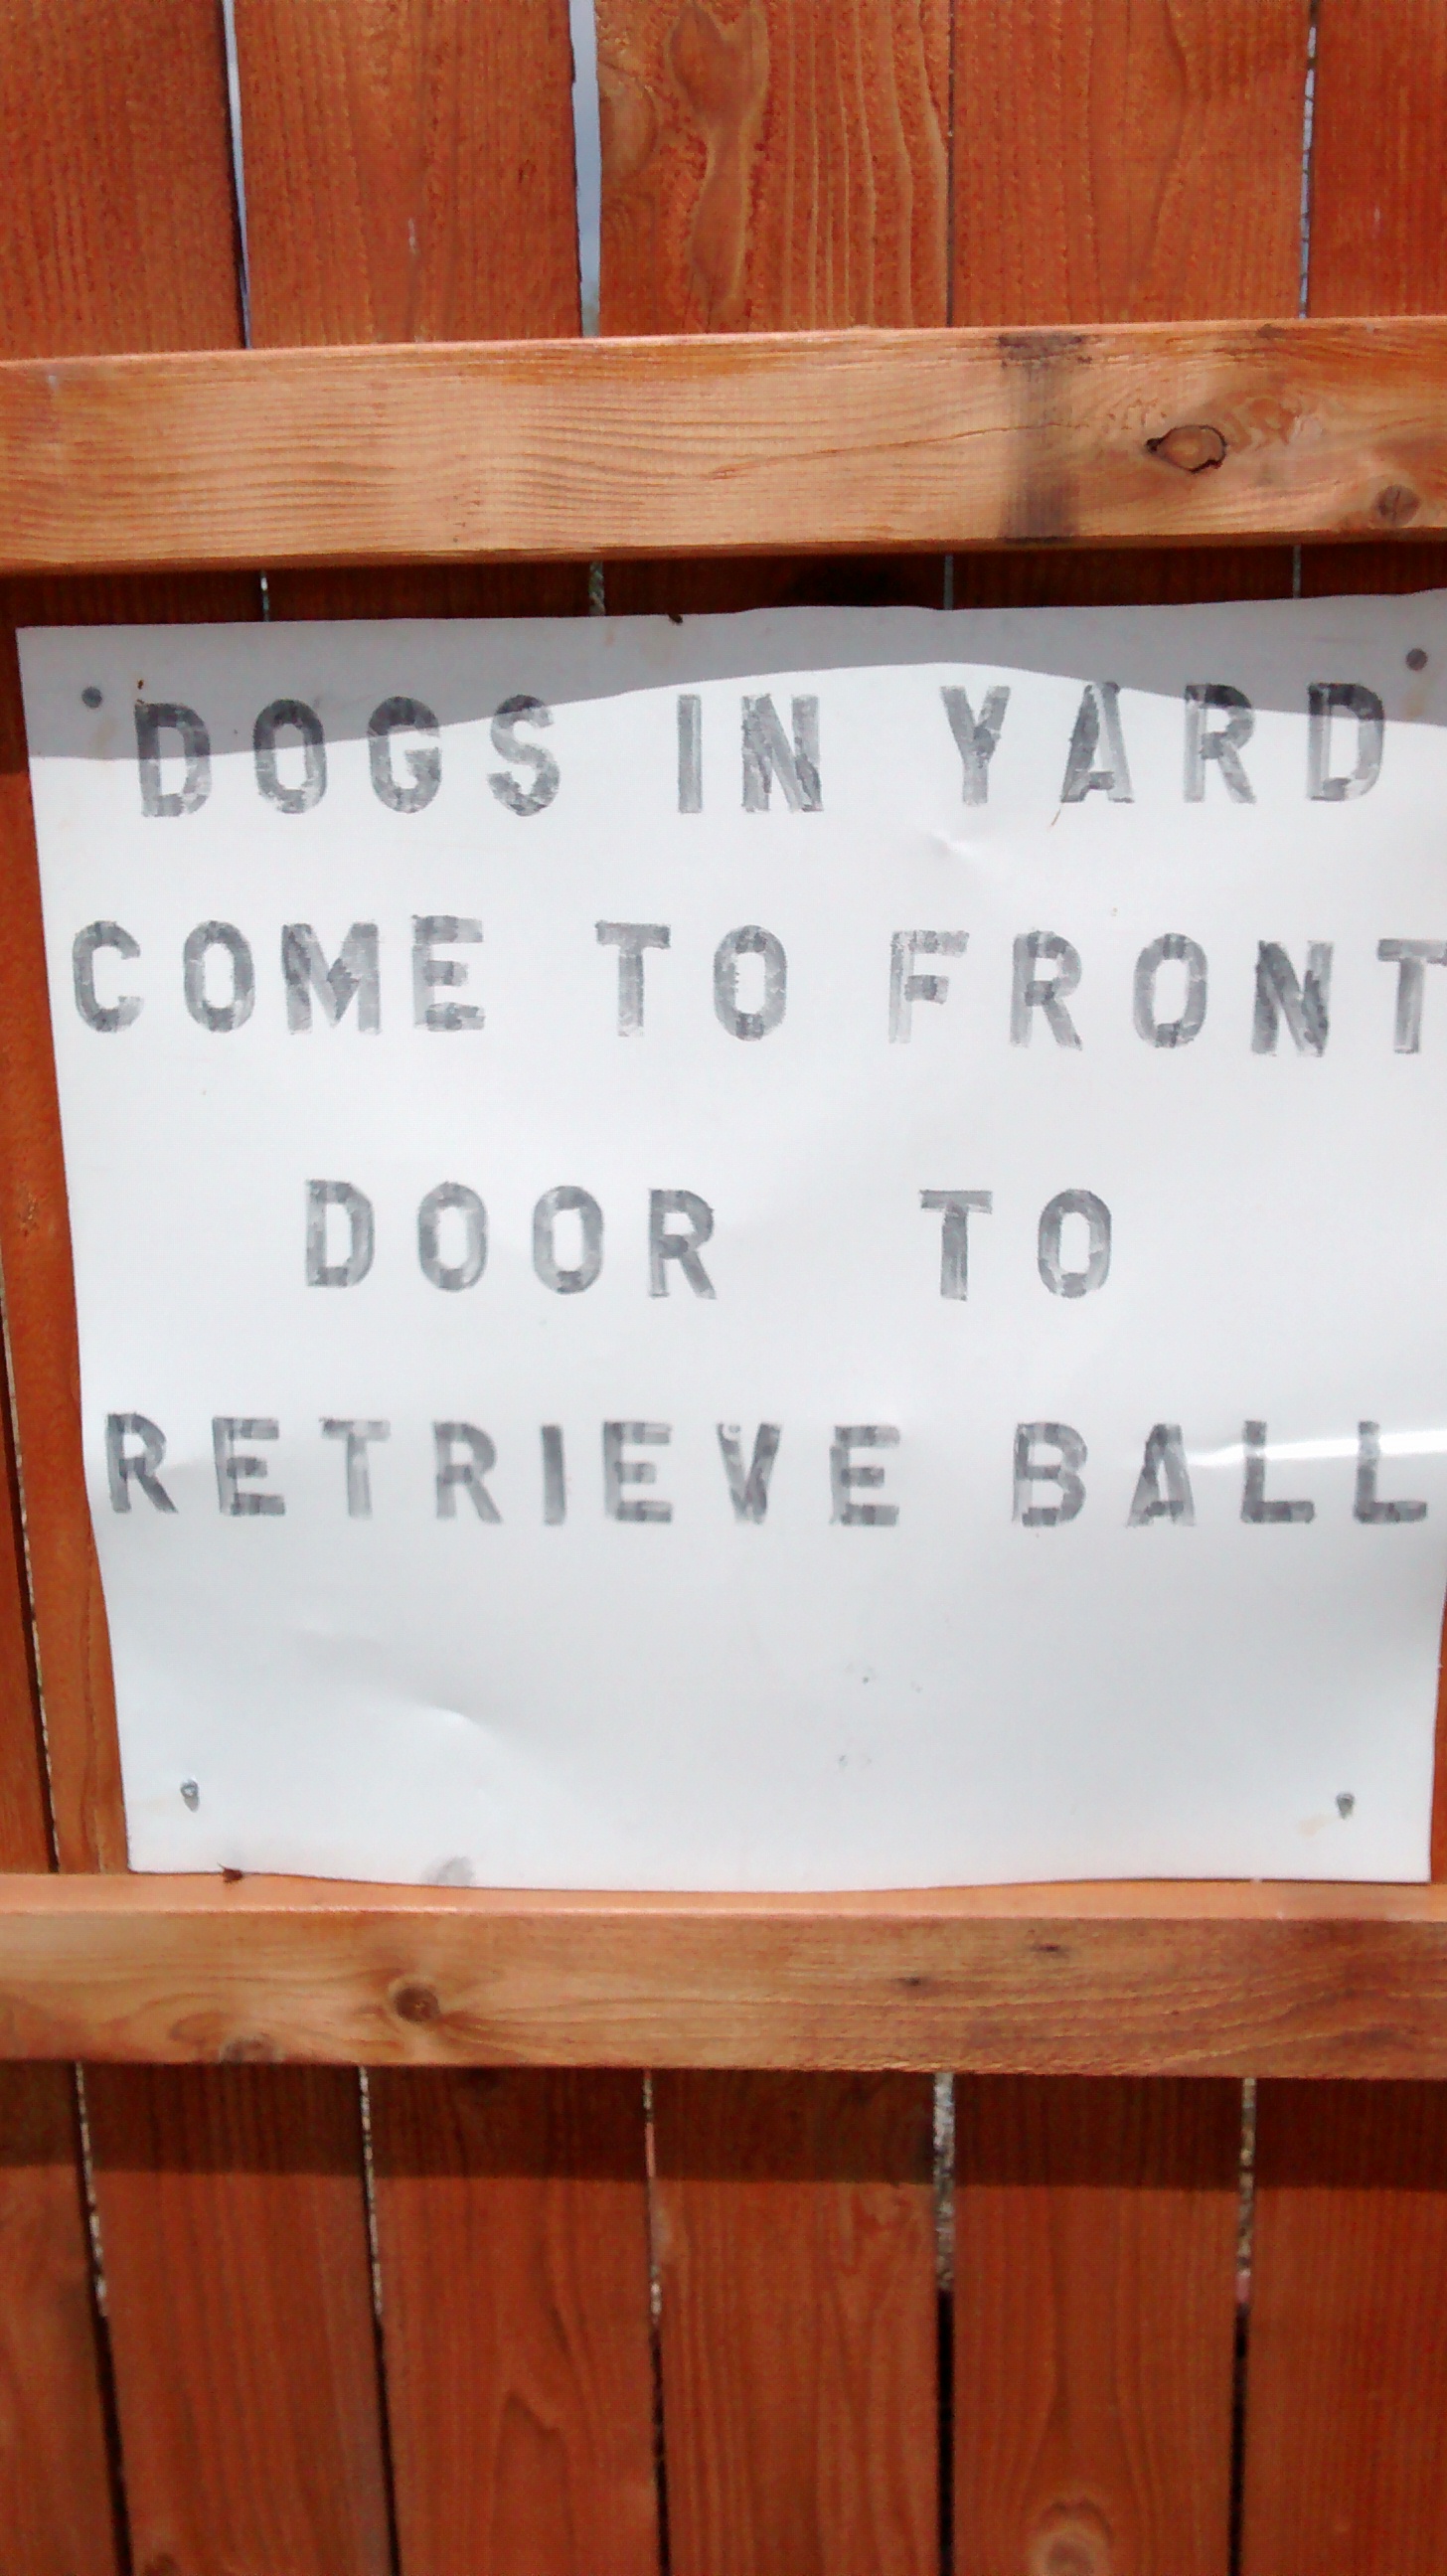 DOGS IN YARD
COME TO FRONT
DOOR TO
RETRIEVE BALL